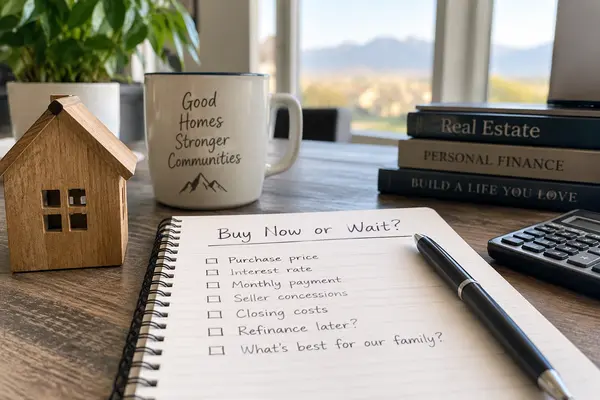 Good
Homes
Stronger
Communities
Real Estate
PERSONAL FINANCE
BUILD A LIFE YOU LOVE
Buy Now or Wait?
Purchase price
Interest rate
Monthly payment
Seller concessions
Closing costs
Refinance later?
What's best for our family?